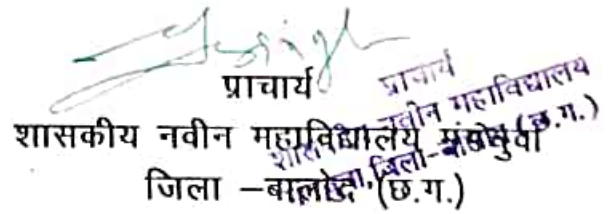 प्राचार्य
शासकीय नवीन महाविद्यालय
जिला –बालोद (छ.ग.)
प्राचार्य
नवीन महाविद्यालय
जिला- (छ.ग.)